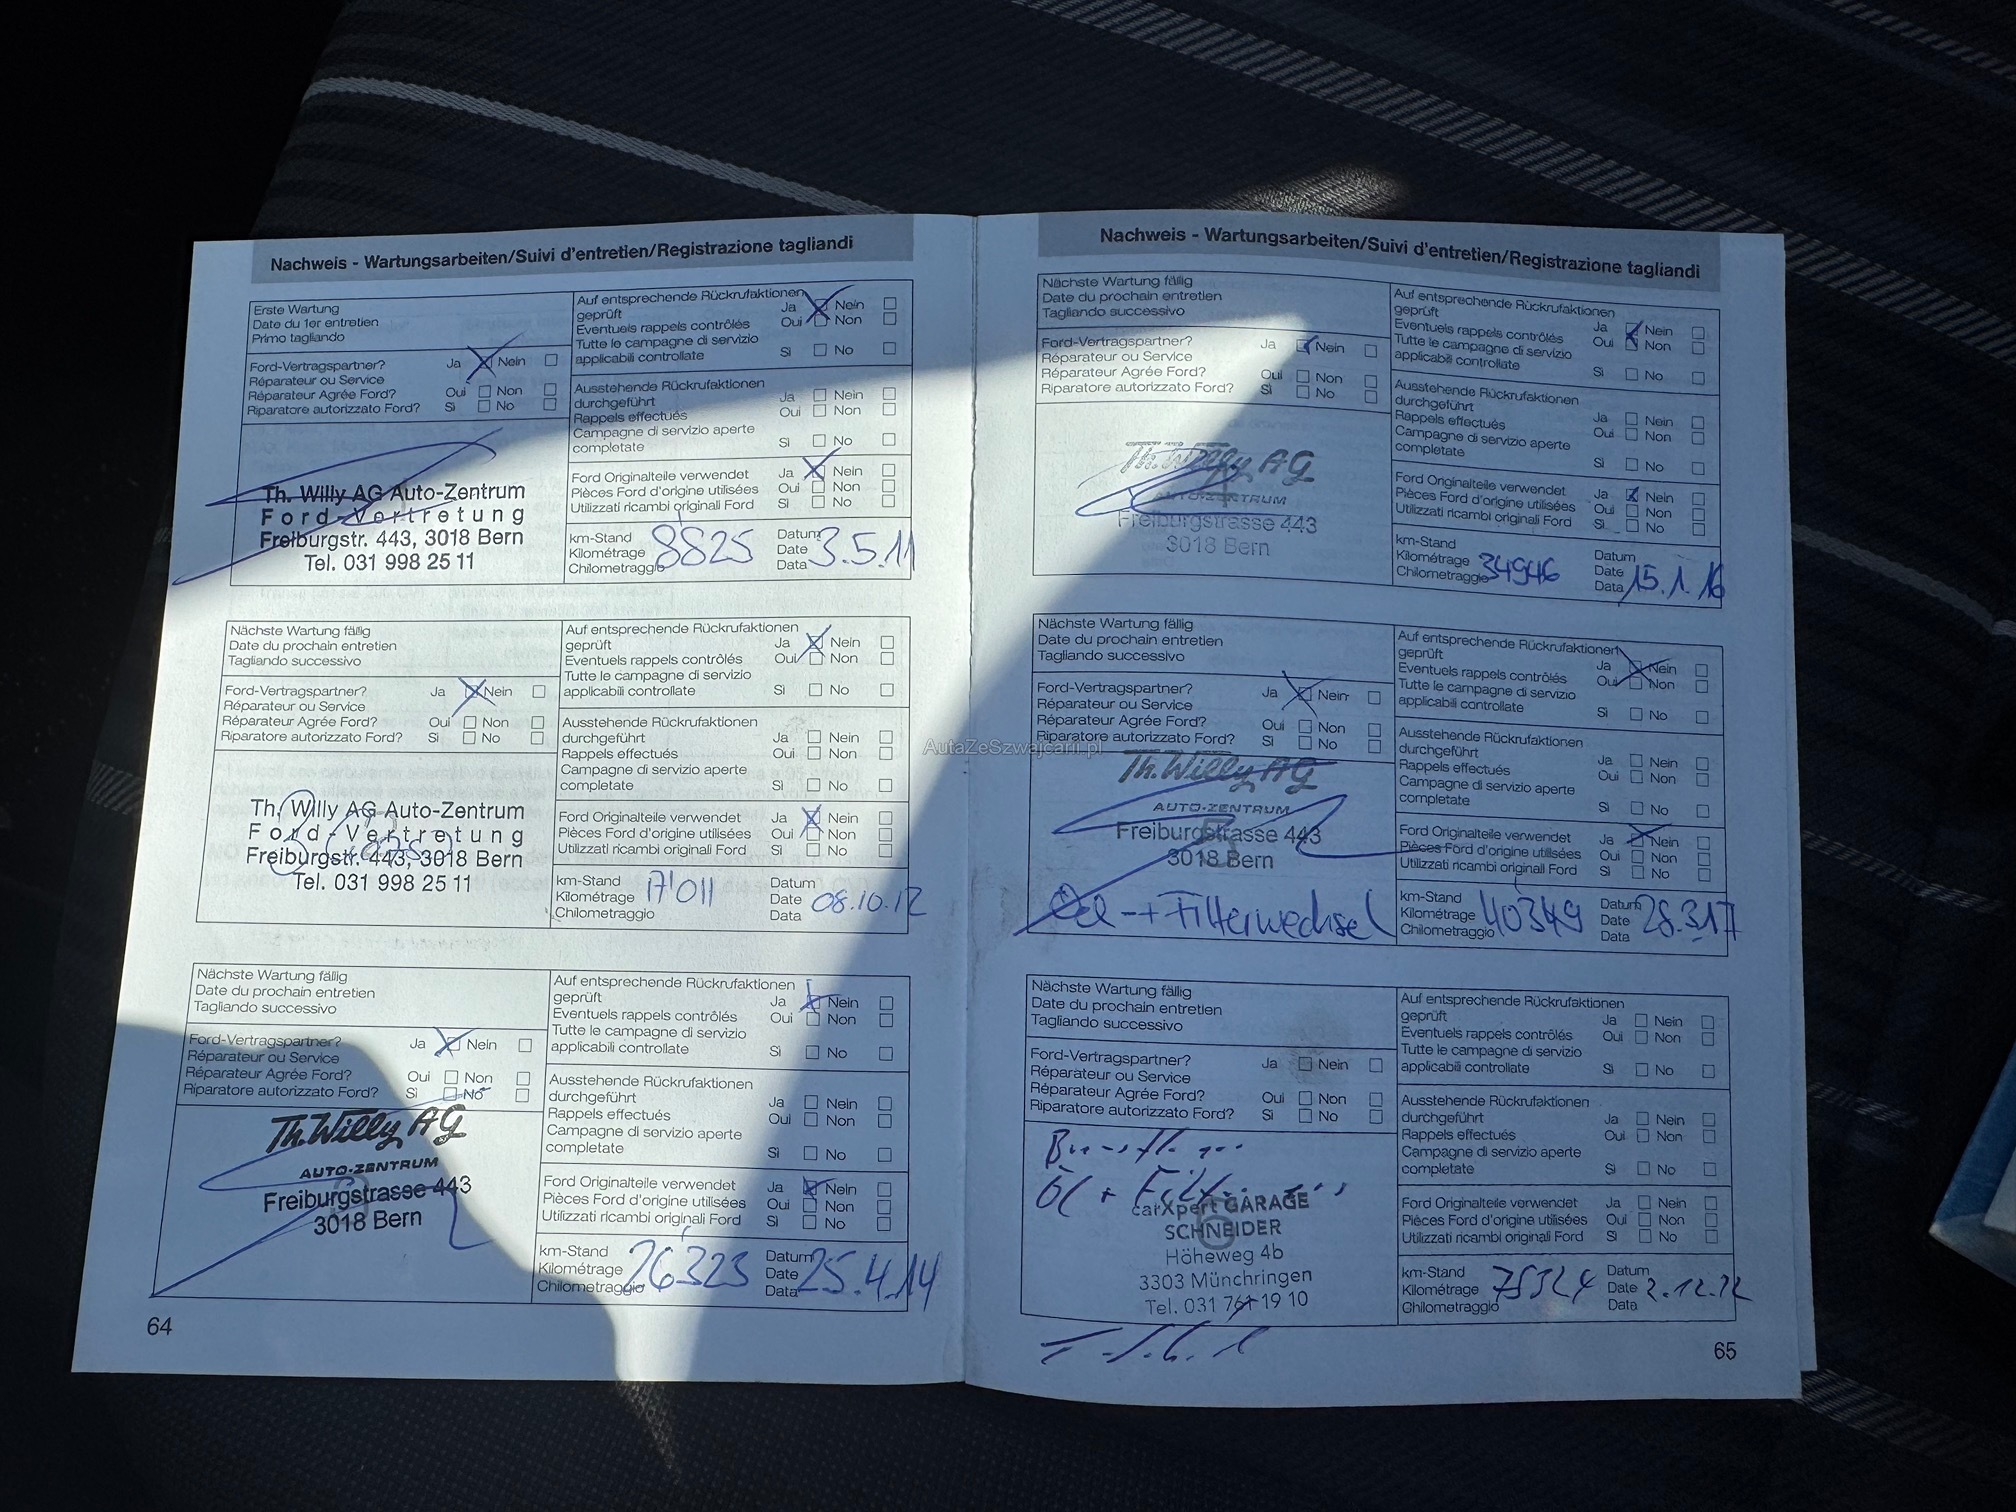 Nachweis - Wartungsarbeiten/Suivi d'entretien/Registrazione tagliandi
Erste Wartung
Date du 1er entretien
Primo tagliando
Ford-Vertragspartner? Ja Nein
Réparateur ou Service
Réparateur Agrée Ford? Oui Non
Riparatore autorizzato Ford? Sì No
Th. Willy AG Auto-Zentrum
Ford-Vertretung
Freiburgstr. 443, 3018 Bern
Tel. 031 998 25 11
Auf entsprechende Rückrufaktionen
geprüft Ja Nein
Eventuels rappels contrôlés Oui Non
Tutte le campagne di servizio
applicabili controllate Sì No
Ausstehende Rückrufaktionen
durchgeführt Ja Nein
Rappels effectués Oui Non
Campagne di servizio aperte
completate Sì No
Ford Originalteile verwendet Ja Nein
Pièces Ford d'origine utilisées Oui Non
Utilizzati ricambi originali Ford Sì No
km-Stand
Kilométrage 8825
Chilometraggio
Datum
Date 3.5.11
Data
Nächste Wartung fällig
Date du prochain entretien
Tagliando successivo
Ford-Vertragspartner? Ja Nein
Réparateur ou Service
Réparateur Agrée Ford? Oui Non
Riparatore autorizzato Ford? Sì No
Th. Willy AG Auto-Zentrum
Ford-Vertretung
Freiburgstr. 443, 3018 Bern
Tel. 031 998 25 11
Auf entsprechende Rückrufaktionen
geprüft Ja Nein
Eventuels rappels contrôlés Oui Non
Tutte le campagne di servizio
applicabili controllate Sì No
Ausstehende Rückrufaktionen
durchgeführt Ja Nein
Rappels effectués Oui Non
Campagne di servizio aperte
completate Sì No
Ford Originalteile verwendet Ja Nein
Pièces Ford d'origine utilisées Oui Non
Utilizzati ricambi originali Ford Sì No
km-Stand
Kilométrage 17'011
Chilometraggio
Datum
Date 08.10.12
Data
Nächste Wartung fällig
Date du prochain entretien
Tagliando successivo
Ford-Vertragspartner? Ja Nein
Réparateur ou Service
Réparateur Agrée Ford? Oui Non
Riparatore autorizzato Ford? Sì No
Th. Willy AG
AUTO-ZENTRUM
Freiburgstrasse 443
3018 Bern
Auf entsprechende Rückrufaktionen
geprüft Ja Nein
Eventuels rappels contrôlés Oui Non
Tutte le campagne di servizio
applicabili controllate Sì No
Ausstehende Rückrufaktionen
durchgeführt Ja Nein
Rappels effectués Oui Non
Campagne di servizio aperte
completate Sì No
Ford Originalteile verwendet Ja Nein
Pièces Ford d'origine utilisées Oui Non
Utilizzati ricambi originali Ford Sì No
km-Stand
Kilométrage 26323
Chilometraggio
Datum
Date 25.4.14
Data
64
Nachweis - Wartungsarbeiten/Suivi d'entretien/Registrazione tagliandi
Nächste Wartung fällig
Date du prochain entretien
Tagliando successivo
Ford-Vertragspartner? Ja Nein
Réparateur ou Service
Réparateur Agrée Ford? Oui Non
Riparatore autorizzato Ford? Sì No
Th. Willy AG
AUTO-ZENTRUM
Freiburgstrasse 443
3018 Bern
Auf entsprechende Rückrufaktionen
geprüft Ja Nein
Eventuels rappels contrôlés Oui Non
Tutte le campagne di servizio
applicabili controllate Sì No
Ausstehende Rückrufaktionen
durchgeführt Ja Nein
Rappels effectués Oui Non
Campagne di servizio aperte
completate Sì No
Ford Originalteile verwendet Ja Nein
Pièces Ford d'origine utilisées Oui Non
Utilizzati ricambi originali Ford Sì No
km-Stand
Kilométrage 34946
Chilometraggio
Datum
Date 15.1.16
Data
Nächste Wartung fällig
Date du prochain entretien
Tagliando successivo
Ford-Vertragspartner? Ja Nein
Réparateur ou Service
Réparateur Agrée Ford? Oui Non
Riparatore autorizzato Ford? Sì No
Th. Willy AG
AUTO-ZENTRUM
Freiburgstrasse 443
3018 Bern
Oel + Filterwechsel
Auf entsprechende Rückrufaktionen
geprüft Ja Nein
Eventuels rappels contrôlés Oui Non
Tutte le campagne di servizio
applicabili controllate Sì No
Ausstehende Rückrufaktionen
durchgeführt Ja Nein
Rappels effectués Oui Non
Campagne di servizio aperte
completate Sì No
Ford Originalteile verwendet Ja Nein
Pièces Ford d'origine utilisées Oui Non
Utilizzati ricambi originali Ford Sì No
km-Stand
Kilométrage 40349
Chilometraggio
Datum
Date 28.3.17
Data
Nächste Wartung fällig
Date du prochain entretien
Tagliando successivo
Ford-Vertragspartner? Ja Nein
Réparateur ou Service
Réparateur Agrée Ford? Oui Non
Riparatore autorizzato Ford? Sì No
Öl +
carXpert GARAGE
SCHNEIDER
Höheweg 4b
3303 Münchringen
Tel. 031 761 19 10
Auf entsprechende Rückrufaktionen
geprüft Ja Nein
Eventuels rappels contrôlés Oui Non
Tutte le campagne di servizio
applicabili controllate Sì No
Ausstehende Rückrufaktionen
durchgeführt Ja Nein
Rappels effectués Oui Non
Campagne di servizio aperte
completate Sì No
Ford Originalteile verwendet Ja Nein
Pièces Ford d'origine utilisées Oui Non
Utilizzati ricambi originali Ford Sì No
km-Stand
Kilométrage 75324
Chilometraggio
Datum
Date 2.12.22
Data
65
AutaZeSzwajcarii.pl